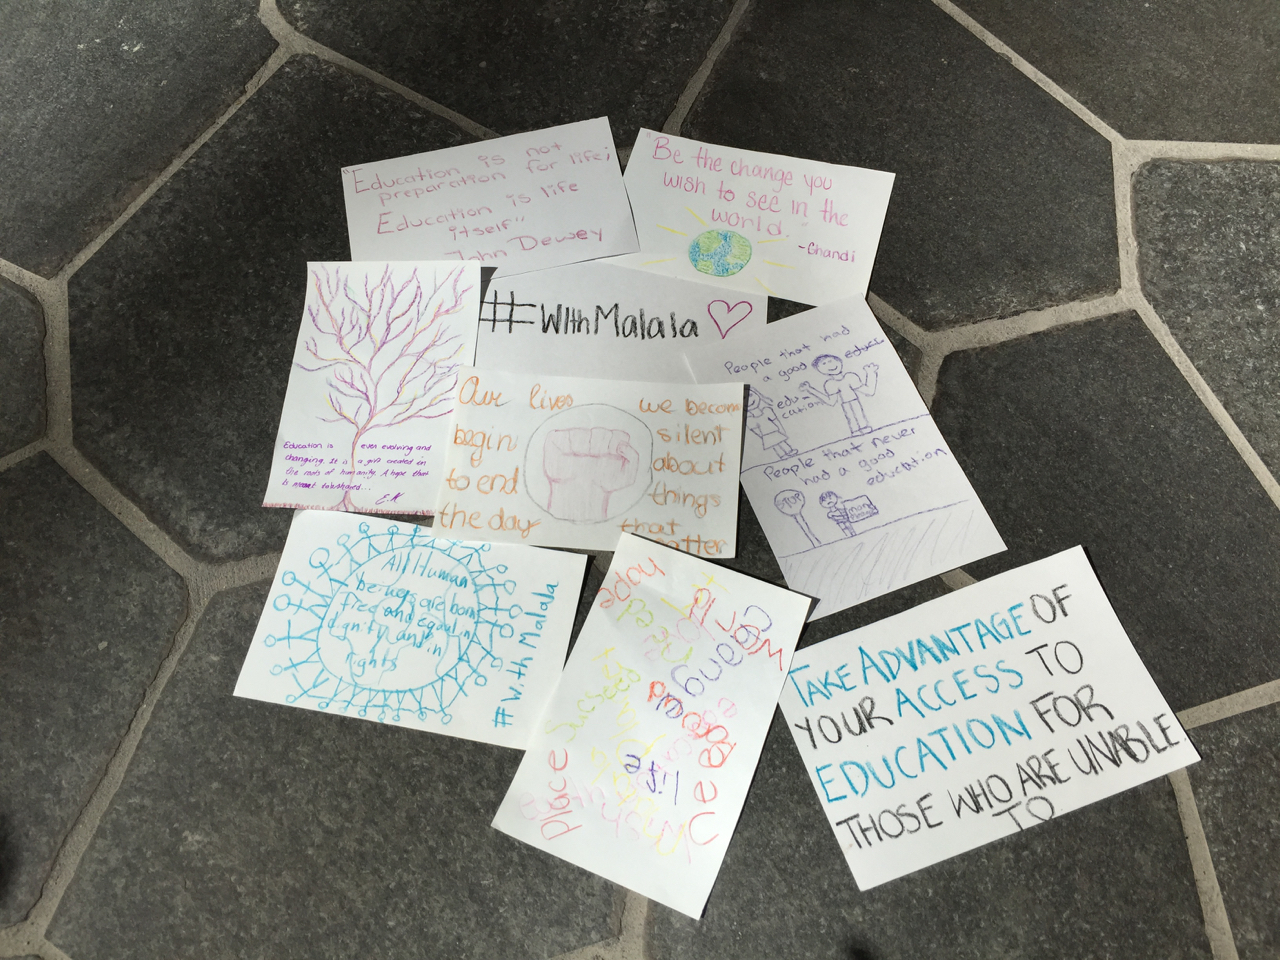 "Education is not
preparation for life;
Education is life
itself"
John Dewey
"Be the change you
wish to see in the
world."
-Ghandi
#WithMalala
People that had
a good educa
edu-
cation
People that never
had a good
education
STOP
Education is ever evolving and
changing. It is a gift created in
the roots of humanity. A hope that
is
E.K
Our lives
begin
to end
the day
we become
silent
about
things
that
matter
All Human
beings are born
free and equal in
dignity and in
rights
#withMalala
hope
World
Change
life
place
TAKE ADVANTAGE OF
YOUR ACCESS TO
EDUCATION FOR
THOSE WHO ARE UNABLE
TO